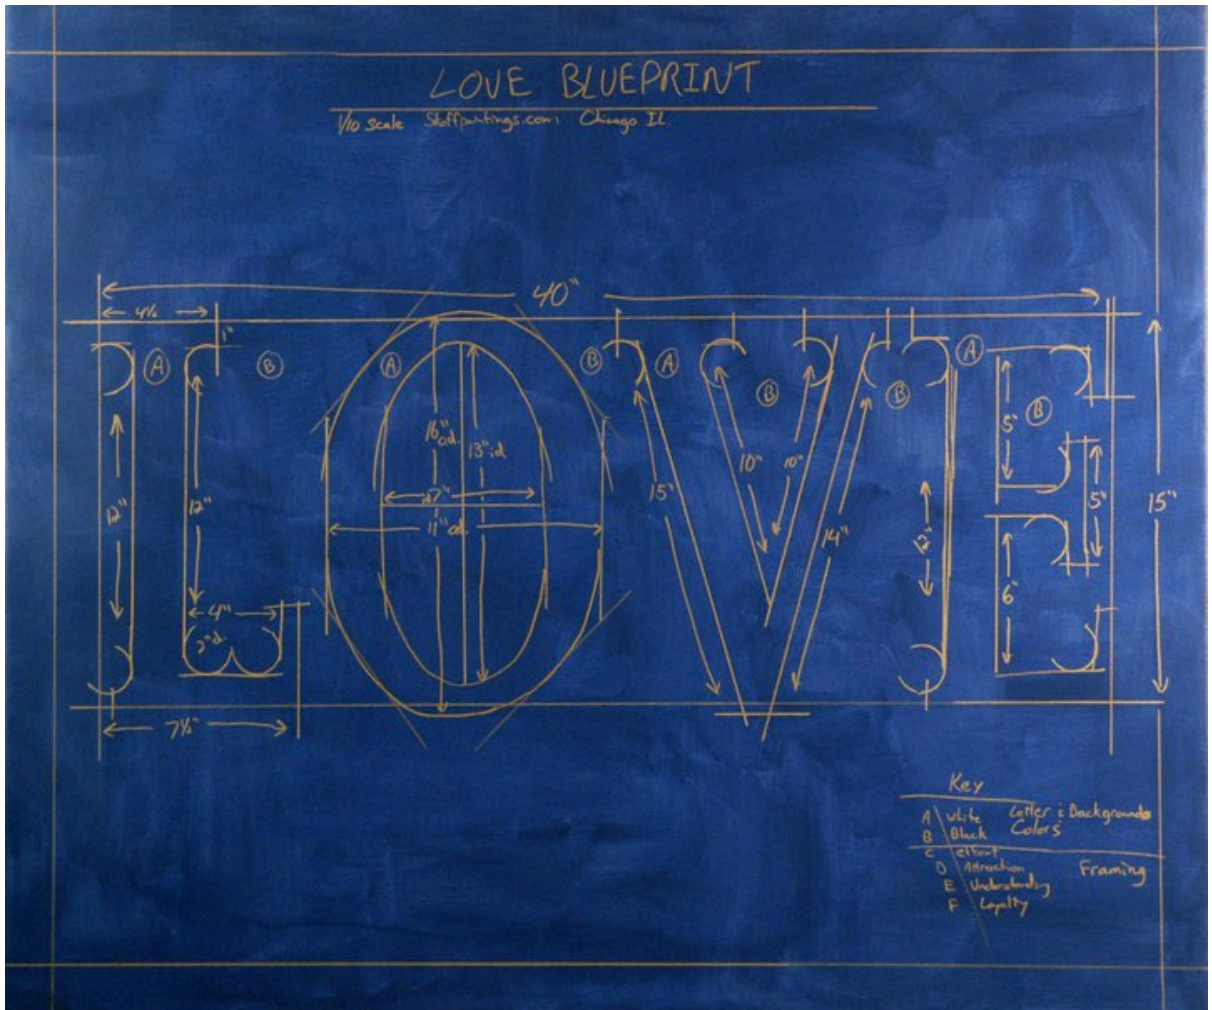 LOVE BLUEPRINT
1/10 Scale Chicago IL.
40"
4½
1"
A
B
A
B
A
B
B
A
B
12"
12"
16" o.d.
13" i.d
7"
11" o.d.
15"
10"
10"
14"
12"
5"
5"
6"
15"
4"
2" d.
7½"
Key
A White Letter & Background
B Black Colors
C effort
D Attraction Framing
E Understanding
F Loyalty